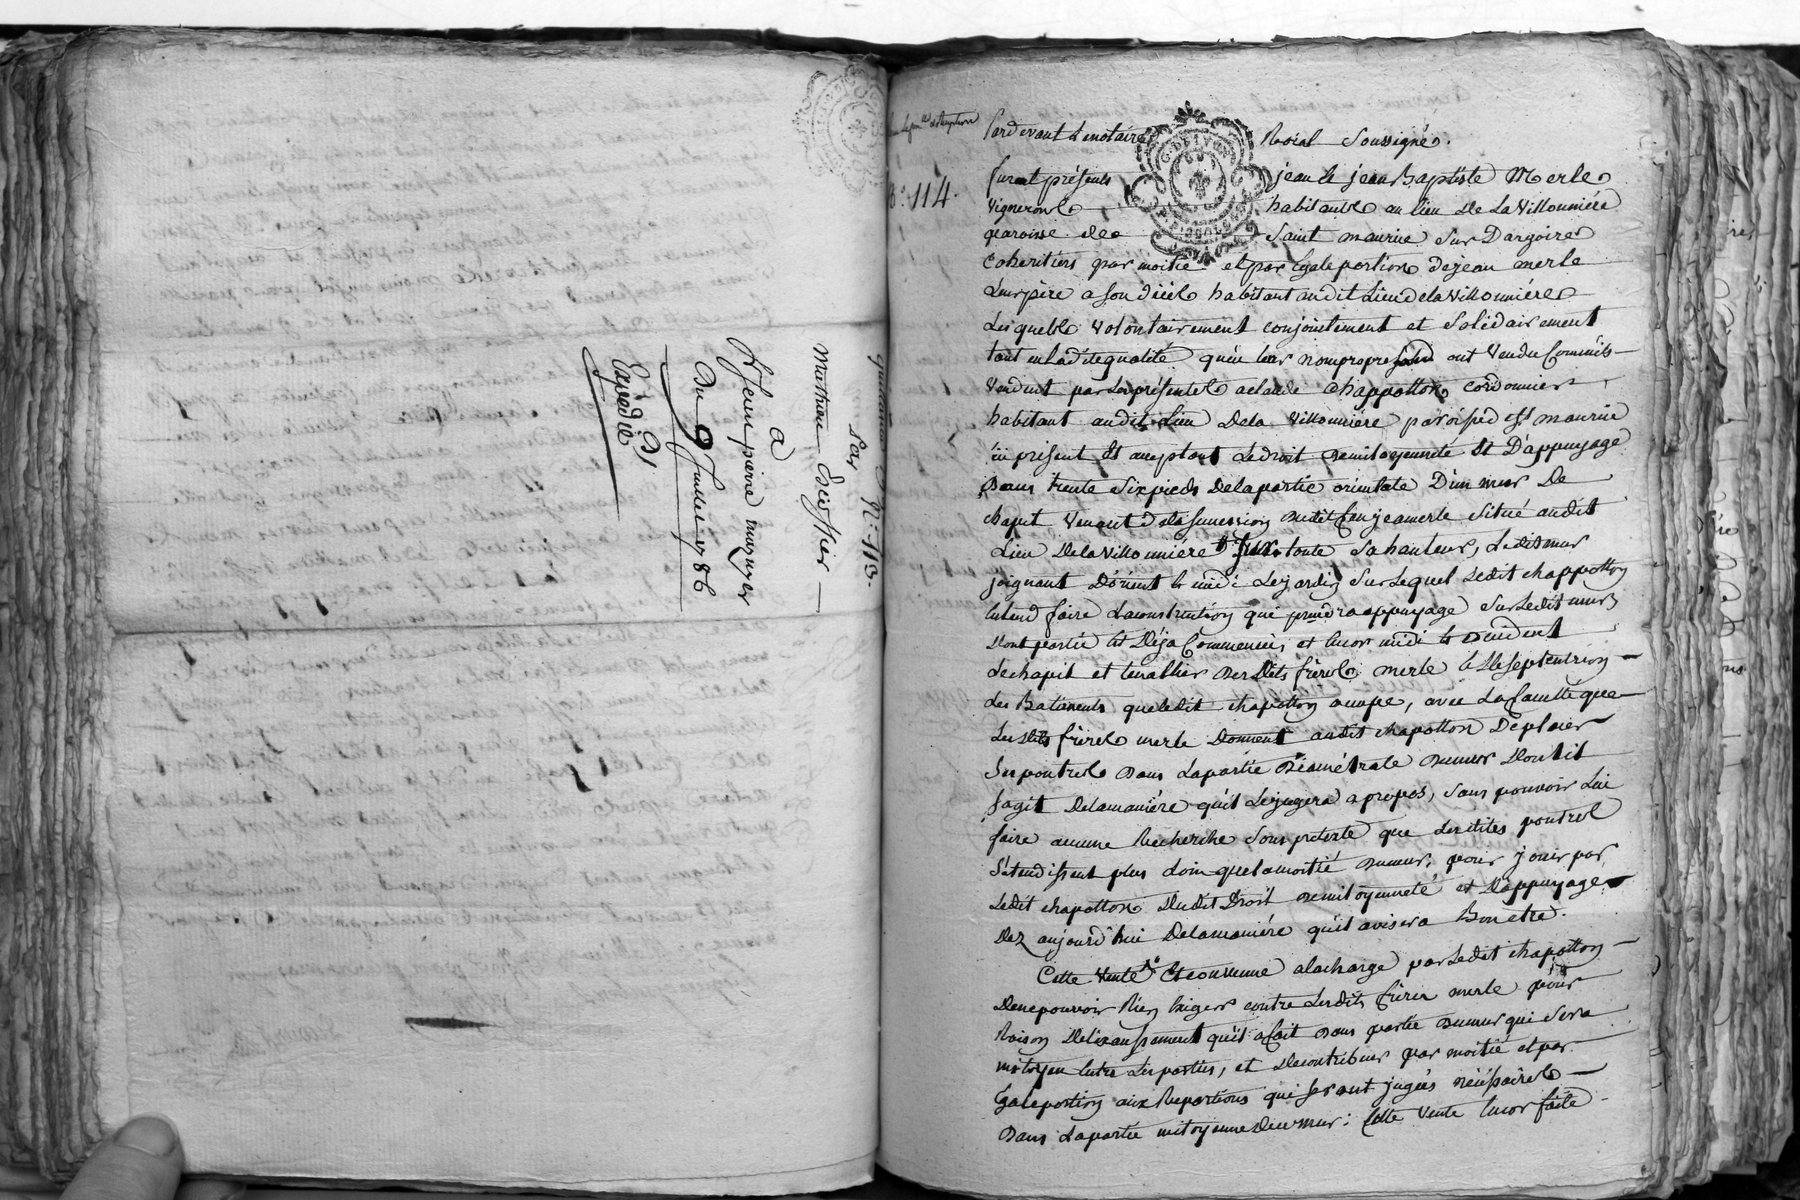 quittance N.º 113.
Par
Mathieu Dessier
a
Sr. jean pierre murzyer
Du 9 Juillet 1786
Expédié
B.º 114.
Pardevant le notaire Roial Soussigné.
furent présents jean et jean Baptiste Merle
Vignerons habitants au lieu de La Villonnière
paroisse de Saint maurice Sur Dargoire
Coheritiers par moitié et par Egale portion de jean merle
Leur père a son décès habitant audit Lieu de la Villonnière
Lesquels volontairement conjointement et Solidairement
tant en ladite qualité qu'en leur nom propre ont Vendu Comme ils
Vendent par Les présentes a claude Chappotton cordonnier
habitant audit Lieu De la Villonnière paroisse de St. maurice
ici présent Et acceptant Le droit De mitoyenneté Et D'appuyage
Dans trente Six pieds De la partie orientale D'un mur De
chapit Venant De la Succession Dudit feu jean merle Situé audit
Lieu De la Villonnière Sur toute Sa hauteur, Ledit mur
joignant D'orient et midi Le jardin Sur Lequel Ledit chappotton
Entend faire La construction qui prendra appuyage Sur Ledit mur
Dont partie Est Déja Commencée, et Encor midi et occident
Le chapit et tenallier Desdits frères merle et De Septentrion
Les Batiments que Ledit chapotton occupe, avec La faculté que
Lesdits frères merle Donnent audit chapotton De placer
Ses poutres Dans La partie Diamétrale Du mur Dont il
s'agit De la manière qu'il Le jugera a propos, Sans pouvoir Lui
faire aucune Recherche Sous prétexte que Lesdites poutres
S'étendissent plus Loin que La moitié Du mur; pour jouir par
Ledit chapotton Dudit Droit De mitoyenneté et D'appuyage
Dez aujourd'hui De la manière qu'il avisera Bon etre.
Cette Vente Est convenue a la charge par Ledit chapotton
De ne pouvoir Rien Exiger contre Lesdits frères merle pour
Raison De l'exaussement qu'il a fait Dans partie Du mur qui Sera
mitoyen Entre Les parties, et De contribuer par moitié et par
Egale portion aux Reparations qui Seront jugées nécéssaires
Dans La partie mitoyenne Du mur: Cette Vente Encor faite